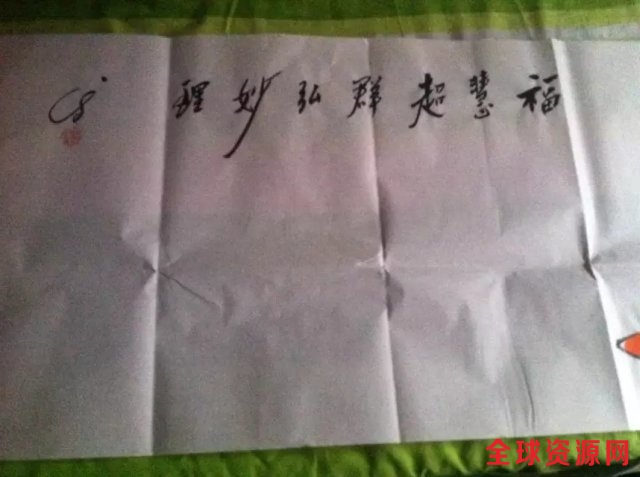 福慧超群弘妙理
全球资源网